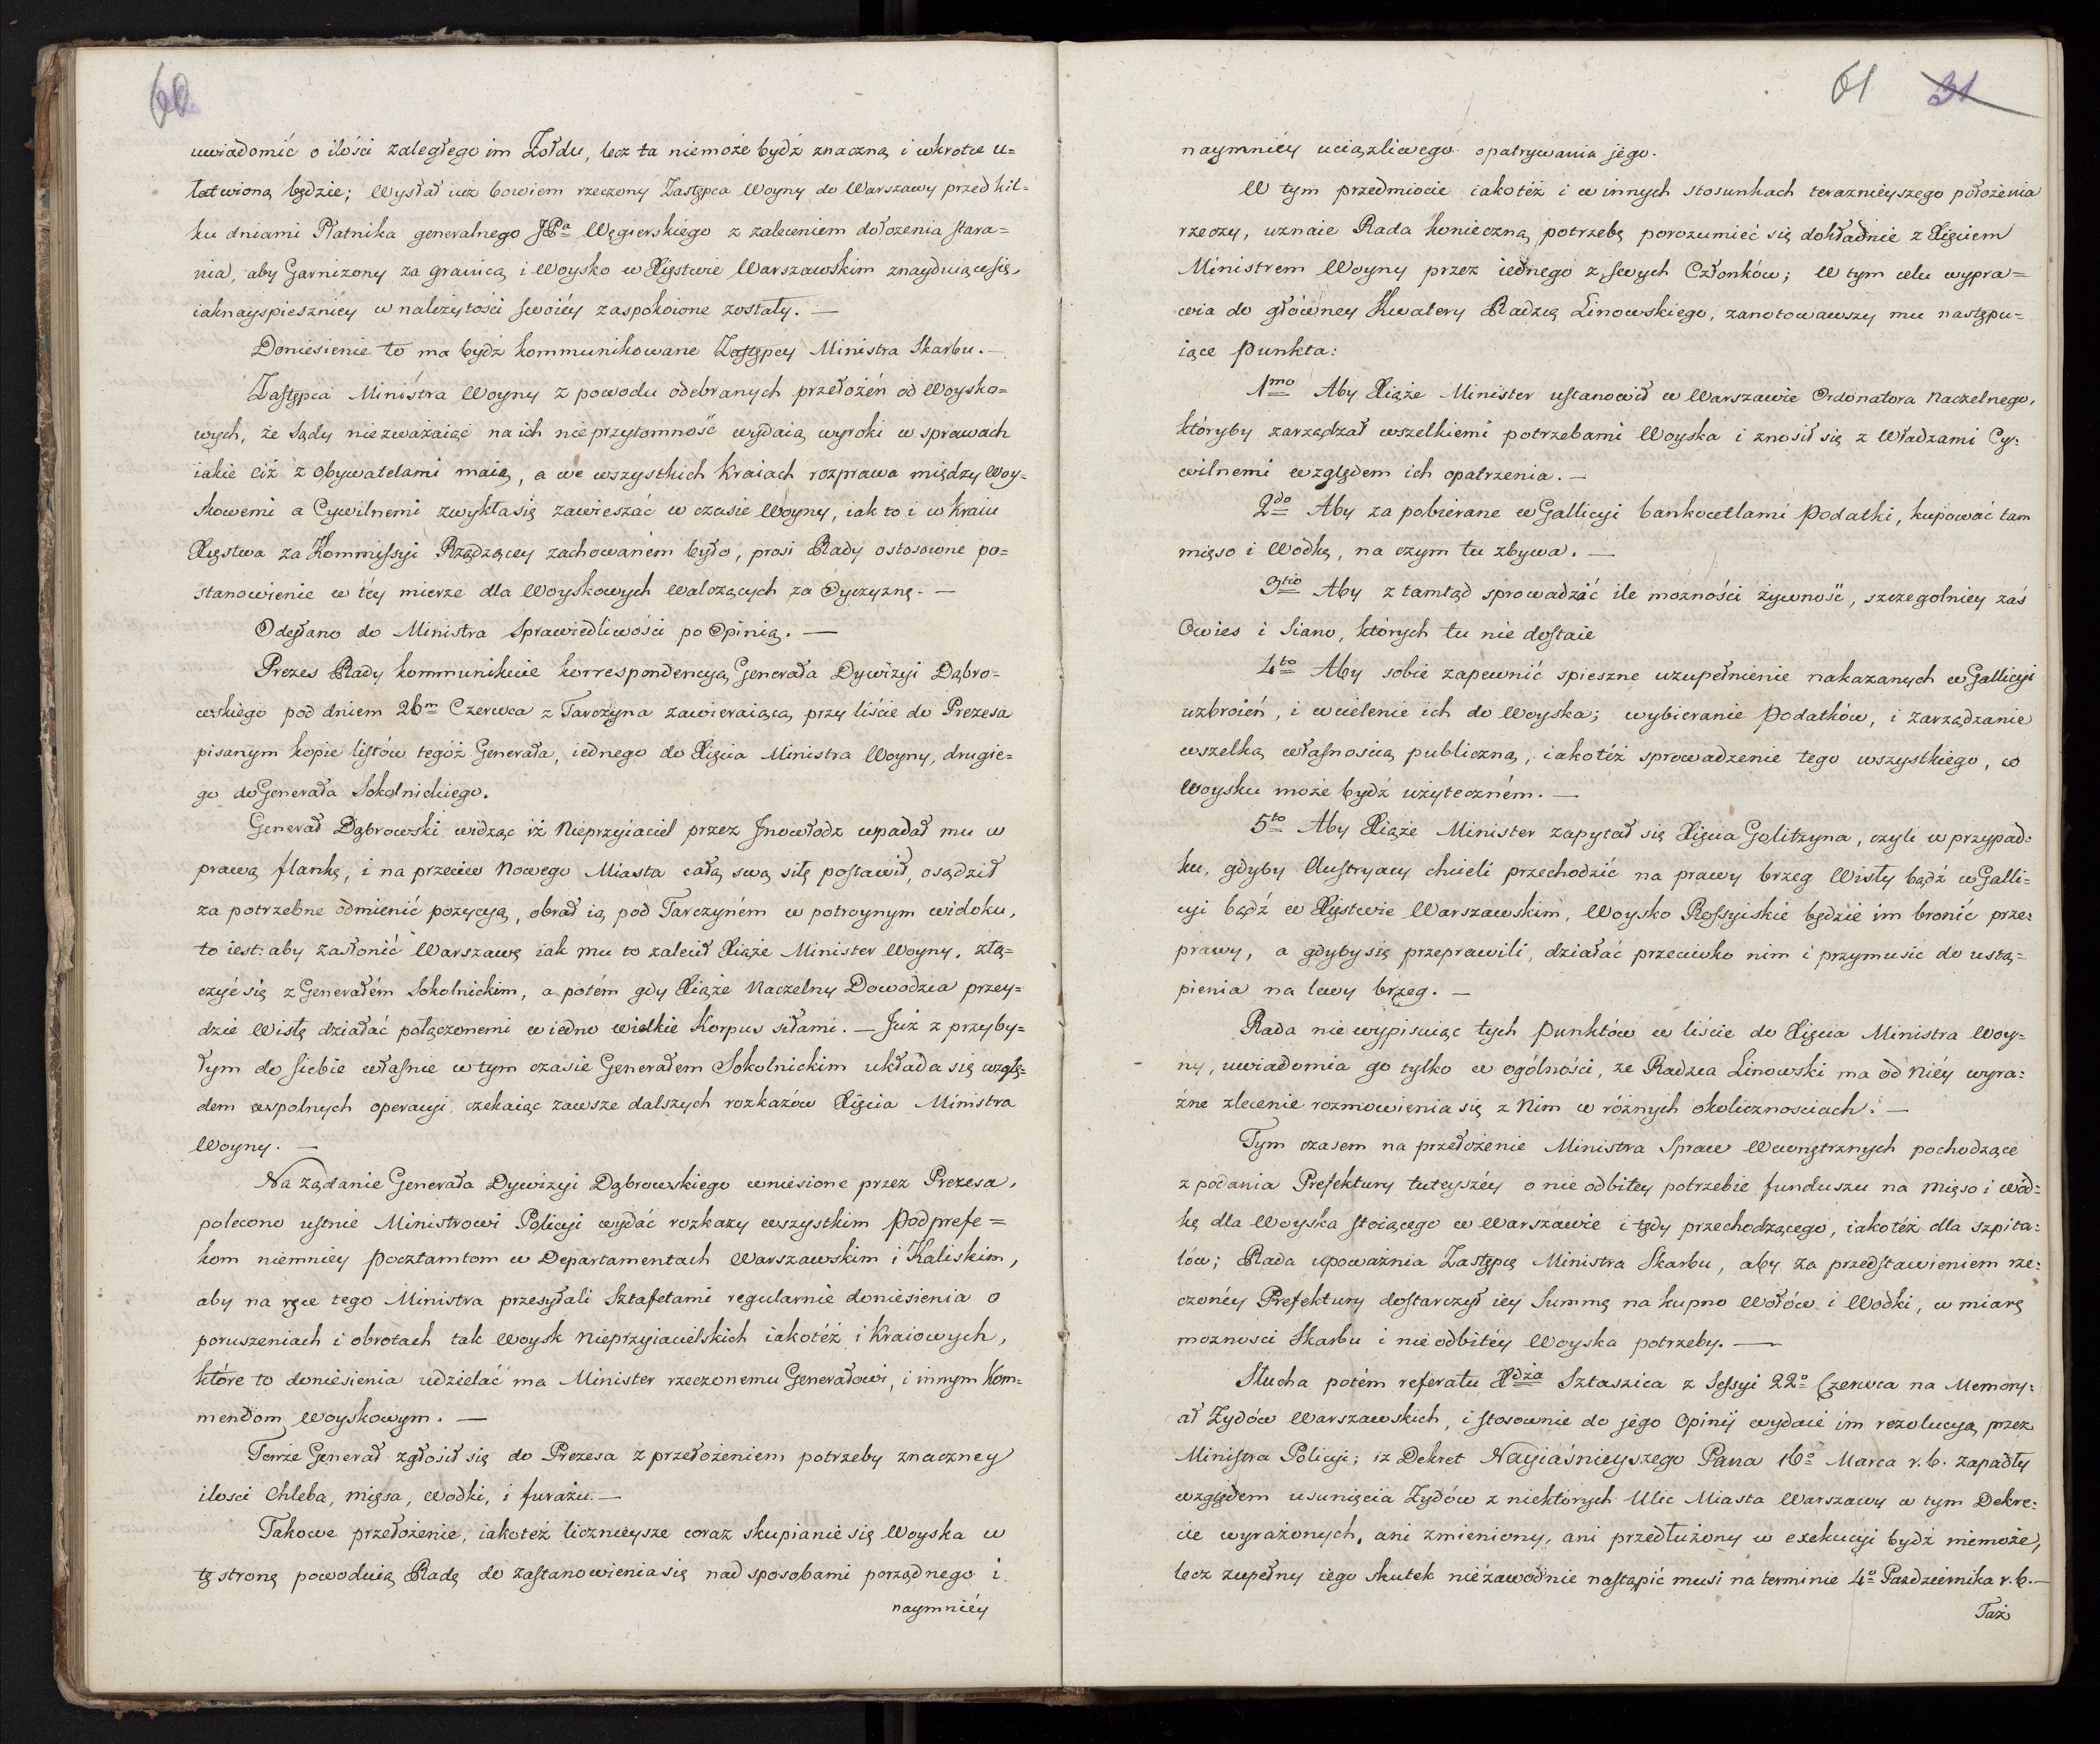 60
uwiadomić o ilości zaległego im Żołdu, lecz ta niemoże bydź znaczną i wkrotce u=
łatwioną będzie; Wysłał iuż bowiem rzeczony Zastępca Woyny do Warszawy przed kil=
ku dniami Płatnika generalnego JPa Węgierskiego z zaleceniem dołożenia stara=
nia, aby Garnizony za granicą i Woysko w Xięstwie Warszawskim znayduiącesię,
iaknayspieszniéy w należytości swoiéy zaspokoione zostały. —
Doniesienie to ma bydź kommunikowane Zastępcy Ministra Skarbu. —
Zastępca Ministra Woyny z powodu odebranych przełożeń od Woysko=
wych, że Sądy niezważaiąc na ich nieprzytomność wydaią wyroki w sprawach
iakie ciż z Obywatelami maią, a we wszystkich kraiach rozprawa między Woy=
skowemi a Cywilnemi zwykłasię zawieszać w czasie Woyny, iak to i w kraiu
Xięstwa za Kommissyi Rządzącey zachowaném było, prosi Rady o stosowne po=
stanowienie w téy mierze dla Woyskowych walczących za Oyczyznę. —
Odesłano do Ministra Sprawiedliwości po Opinią. —
Prezes Rady kommunikuie korrespondencyą Generała Dywizyi Dąbro=
wskiego pod dniem 26m Czerwca z Tarczyna zawieraiącą przy liście do Prezesa
pisanym kopie listów tegóż Generała, iednego do Xięcia Ministra Woyny, drugie=
go do Generała Sokolnickiego.
Generał Dąbrowski widząc iż Nieprzyiaciel przez Jnowłódz wpadał mu w
prawą flankę, i na przeciw Nowego Miasta całą swą siłę postawił, osądził
za potrzebne odmienić pozycyą, obrał ią pod Tarczyném w potroynym widoku,
to iest: aby zasłonić Warszawę iak mu to zalecił Xiąże Minister Woyny, złą=
czyć się z Generałém Sokolnickim, a potém gdy Xiąże Naczelny Dowodzca przey=
dzie Wisłę działać połączonemi w iedno wielkie Korpus siłami. — Już z przyby=
łym do siebie właśnie w tym czasie Generałem Sokolnickim układa się wzglę=
dem wspolnych operacyi czekaiąc zawsze dalszych rozkazów Xięcia Ministra
Woyny. —
Na żądanie Generała Dywizyi Dąbrowskiego wniesione przez Prezesa,
polecono ustnie Ministrowi Policyi wydać rozkazy wszystkim Podprefe=
kom niemniey Pocztamtom w Departamentach Warszawskim i Kaliskim,
aby na ręce tego Ministra przesyłali Sztafetami regularnie doniesienia o
poruszeniach i obrotach tak Woysk Nieprzyiacielskich iakotéż i Kraiowych,
które to doniesienia udzielać ma Minister rzeczonemu Generałowi, i innym Kom=
mendom Woyskowym. —
Tenże Generał zgłosił się do Prezesa z przełożeniem potrzeby znaczney
ilosci Chleba, mięsa, wodki, i furażu. —
Takowe przełożenie, iakoteż licznieysze coraz skupianie się Woyska w
tę stronę powoduią Radę do zastanowieniasię nad sposobami porządnego i
naymniéy
61 31
naymniéy uciążliwego opatrywania jégo.
W tym przedmiocie iakotéż i w innych stosunkach teraznieyszego położenia
rzeczy, uznaie Rada konieczną potrzebę porozumieć się dokładnie z Xięciem
Ministrem Woyny przez iednego z swych Członków; W tym celu wypra=
wia do głównéy Kwatery Radzcę Linowskiego, zanotowawszy mu następu=
iące Punkta:
1mo Aby Xiąże Minister ustanowił w Warszawie Ordonatora Naczelnego,
któryby zarządzał wszelkiemi potrzebami Woyska i znosił się z Władzami Cy=
wilnemi względem ich opatrzenia. —
2do Aby za pobierane w Gallicyi bankocetlami Podatki, kupować tam
mięso i Wodkę, na czym tu zbywa. —
3tio Aby z tamtąd sprowadzać ile możności żywność, szczegolniey zaś
Owies i Siano, których tu nie dostaie
4to Aby sobie zapewnić spieszne uzupełnienie nakazanych w Gallicyi
uzbroień, i wcielenie ich do Woyska; wybieranie Podatków, i zarządzanie
wszelką własnością publiczną, iakotéż sprowadzenie tego wszystkiego, co
Woysku może bydź użyteczném. —
5to Aby Xiąże Minister zapytał się Xięcia Golitzyna, czyli w przypad=
ku, gdyby Austryacy chcieli przechodzić na prawy brzeg Wisły bądź w Galli=
cyi bądź w Xięstwie Warszawskim, Woysko Rossyiskie będzie im bronić prze=
prawy, a gdyby się przeprawili, działać przeciwko nim i przymusić do ustą=
pienia na lewy brzeg. —
Rada nie wypisuiąc tych Punktów w liście do Xięcia Ministra Woy=
ny, uwiadomia go tylko w ogólności, że Radzca Linowski ma od Niéy wyra=
źne zlecenie rozmowienia się z Nim w różnych okolicznosciach. —
Tym czasem na przełożenie Ministra Spraw Wewnętrznych pochodzące
z podania Prefektury tuteyszéy o nie odbitey potrzebie funduszu na Mięso i wód=
kę dla Woyska stoiącego w Warszawie i tędy przechodzącego, iakotéż dla Szpita=
lów; Rada upoważnia Zastępcę Ministra Skarbu, aby za przedstawieniem rze=
czonéy Prefektury dostarczył iey Summę na kupno Wołów i Wodki, w miarę
mozności Skarbu i nie odbitéy Woyska potrzeby. —
Słucha potém referatu Xdza Sztaszica z Sessyi 22o Czerwca na Memory=
ał Żydów Warszawskich, i stosownie do jégo Opinij wydaie im rezolucyą przez
Ministra Policyi; iż Dekret Nayiaśnieyszego Pana 16o Marca r. b. zapadły
względem usunięcia Żydów z niektórych Ulic Miasta Warszawy w tym Dekre=
cie wyrażonych, ani zmieniony, ani przedłużony w exekucyi bydź niemoże,
lecz zupełny iego skutek niezawodnie nastąpić musi na terminie 4o Pazdziernika r. b. —
Taż